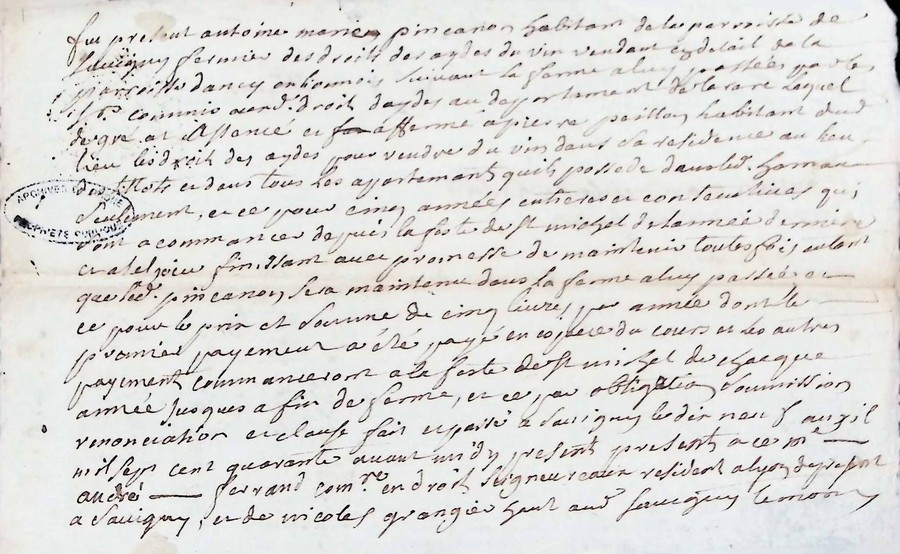 fut present antoine marie pincanon habitant de la parroisse de
Savigny fermier des droits des aydes du vin vendant en detail de la
parroisse dancy en lionnois suivant la ferme a luy passée par les
commis aud. droit daydes au departement de lequel
de gré at Assencé et affermé a pierre paillon habitant dud
lieu les droit des aydes pour vendre du vin dans sa residence au lieu
et dans tous les appartement quil possede dans led.
Seulement, et ce pour cinq années entieres et consecutives qui
ont a commancer depuis la feste de st michel de lannée derniere
et a tel jour finissant avec promesse de maintenir toutesfois autant
que led. pincanon sera maintenu dans la ferme a luy passée et
ce pour le prix et somme de cinq livres par année dont le
premier payement a été payé en espece du cours et les autres
payement commanceront a la feste de st michel de chacque
année jusques a fin de ferme, et ce par obligation soumission
renonciation et clause fait et passé a Savigny le dix neuf avril
mil sept cent quarante avant midy present present a ce me
andré ferrand comre en droit seigneuriaux resident a lyon de present
a Savigny, et de nicolas grangie hant aud Savigny temoins
ARCHIVES DU RHONE
PROPRIETE PUBLIQUE